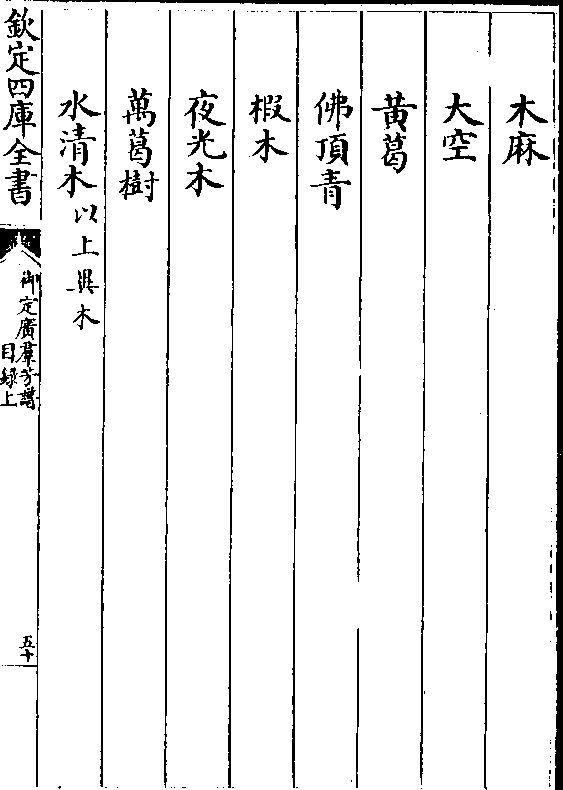 木麻
大空
黃葛
佛頂青
椵木
夜光木
萬葛樹
水清木以上異木
欽定四庫全書
御定廣羣芳譜
目録上
五十